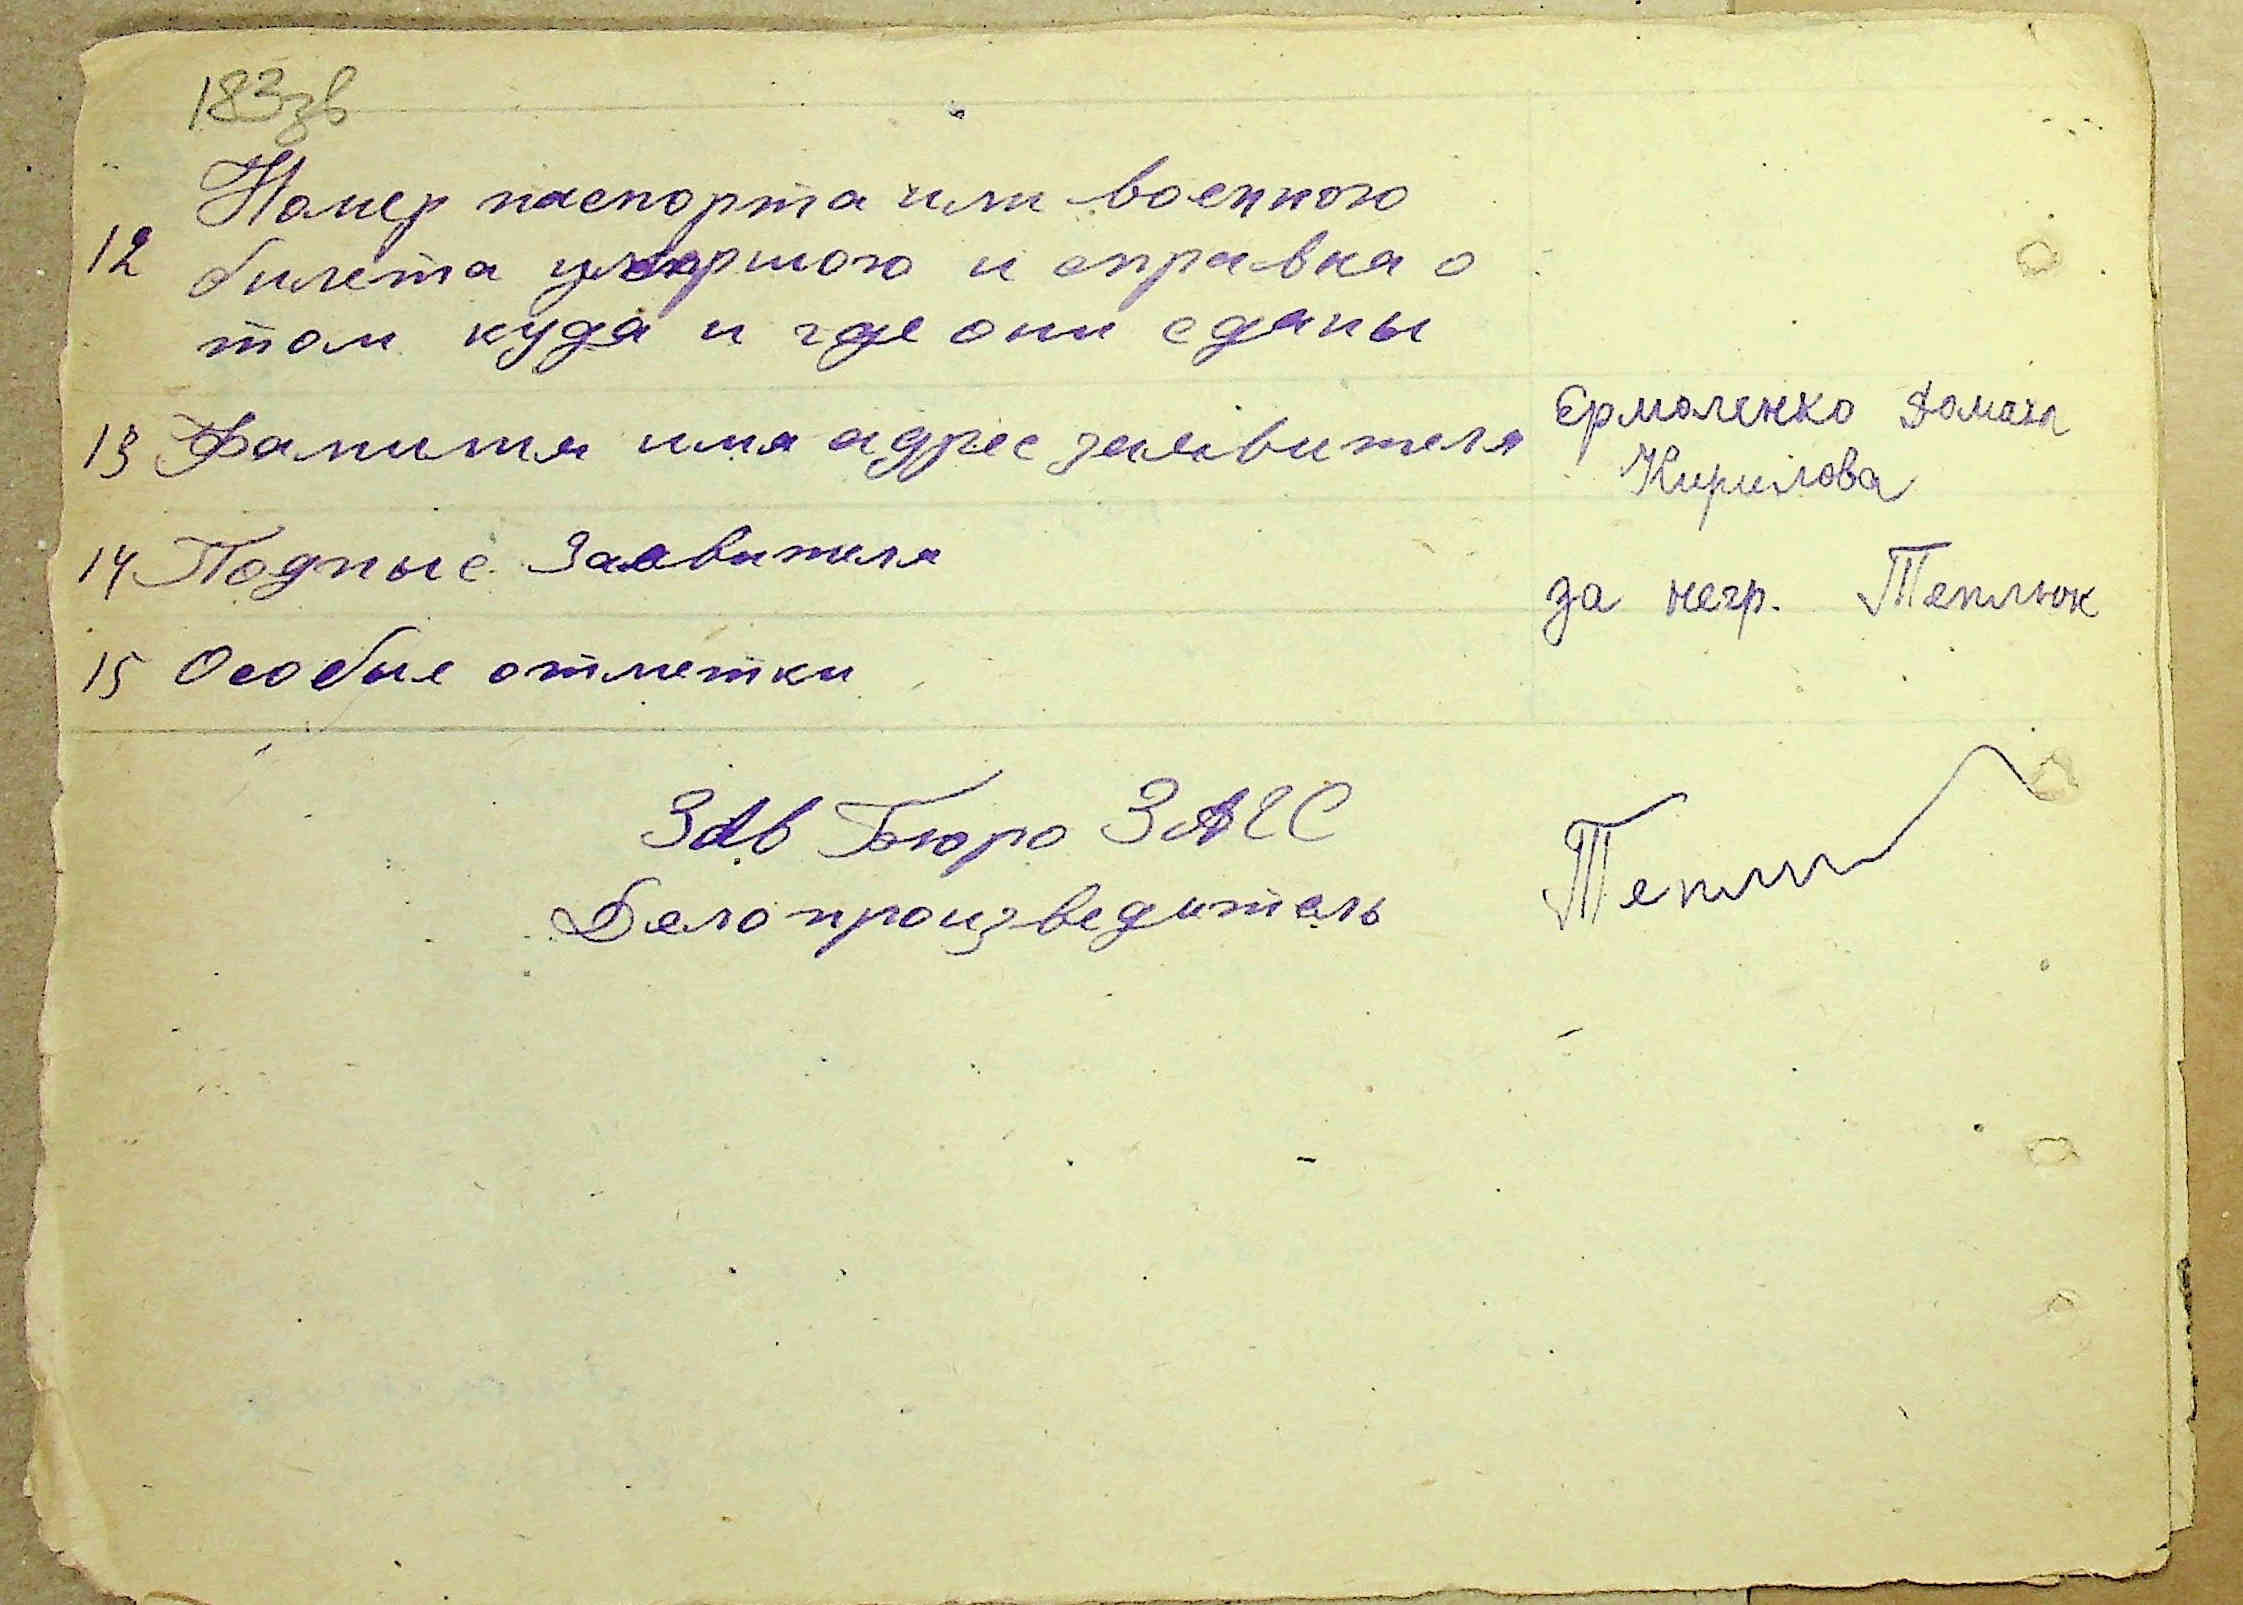 183зв
12 Номер паспорта или военного
билета умершого и справка о
том куда и где они сданы
13 Фамилия имя адрес заявителя
Ермоленко Домаха
Кирилова
14 Подпыс Заявителя
за негр. Теплюк
15 Особые отметки
Зав Бюро ЗАГС
Делопроизведитель